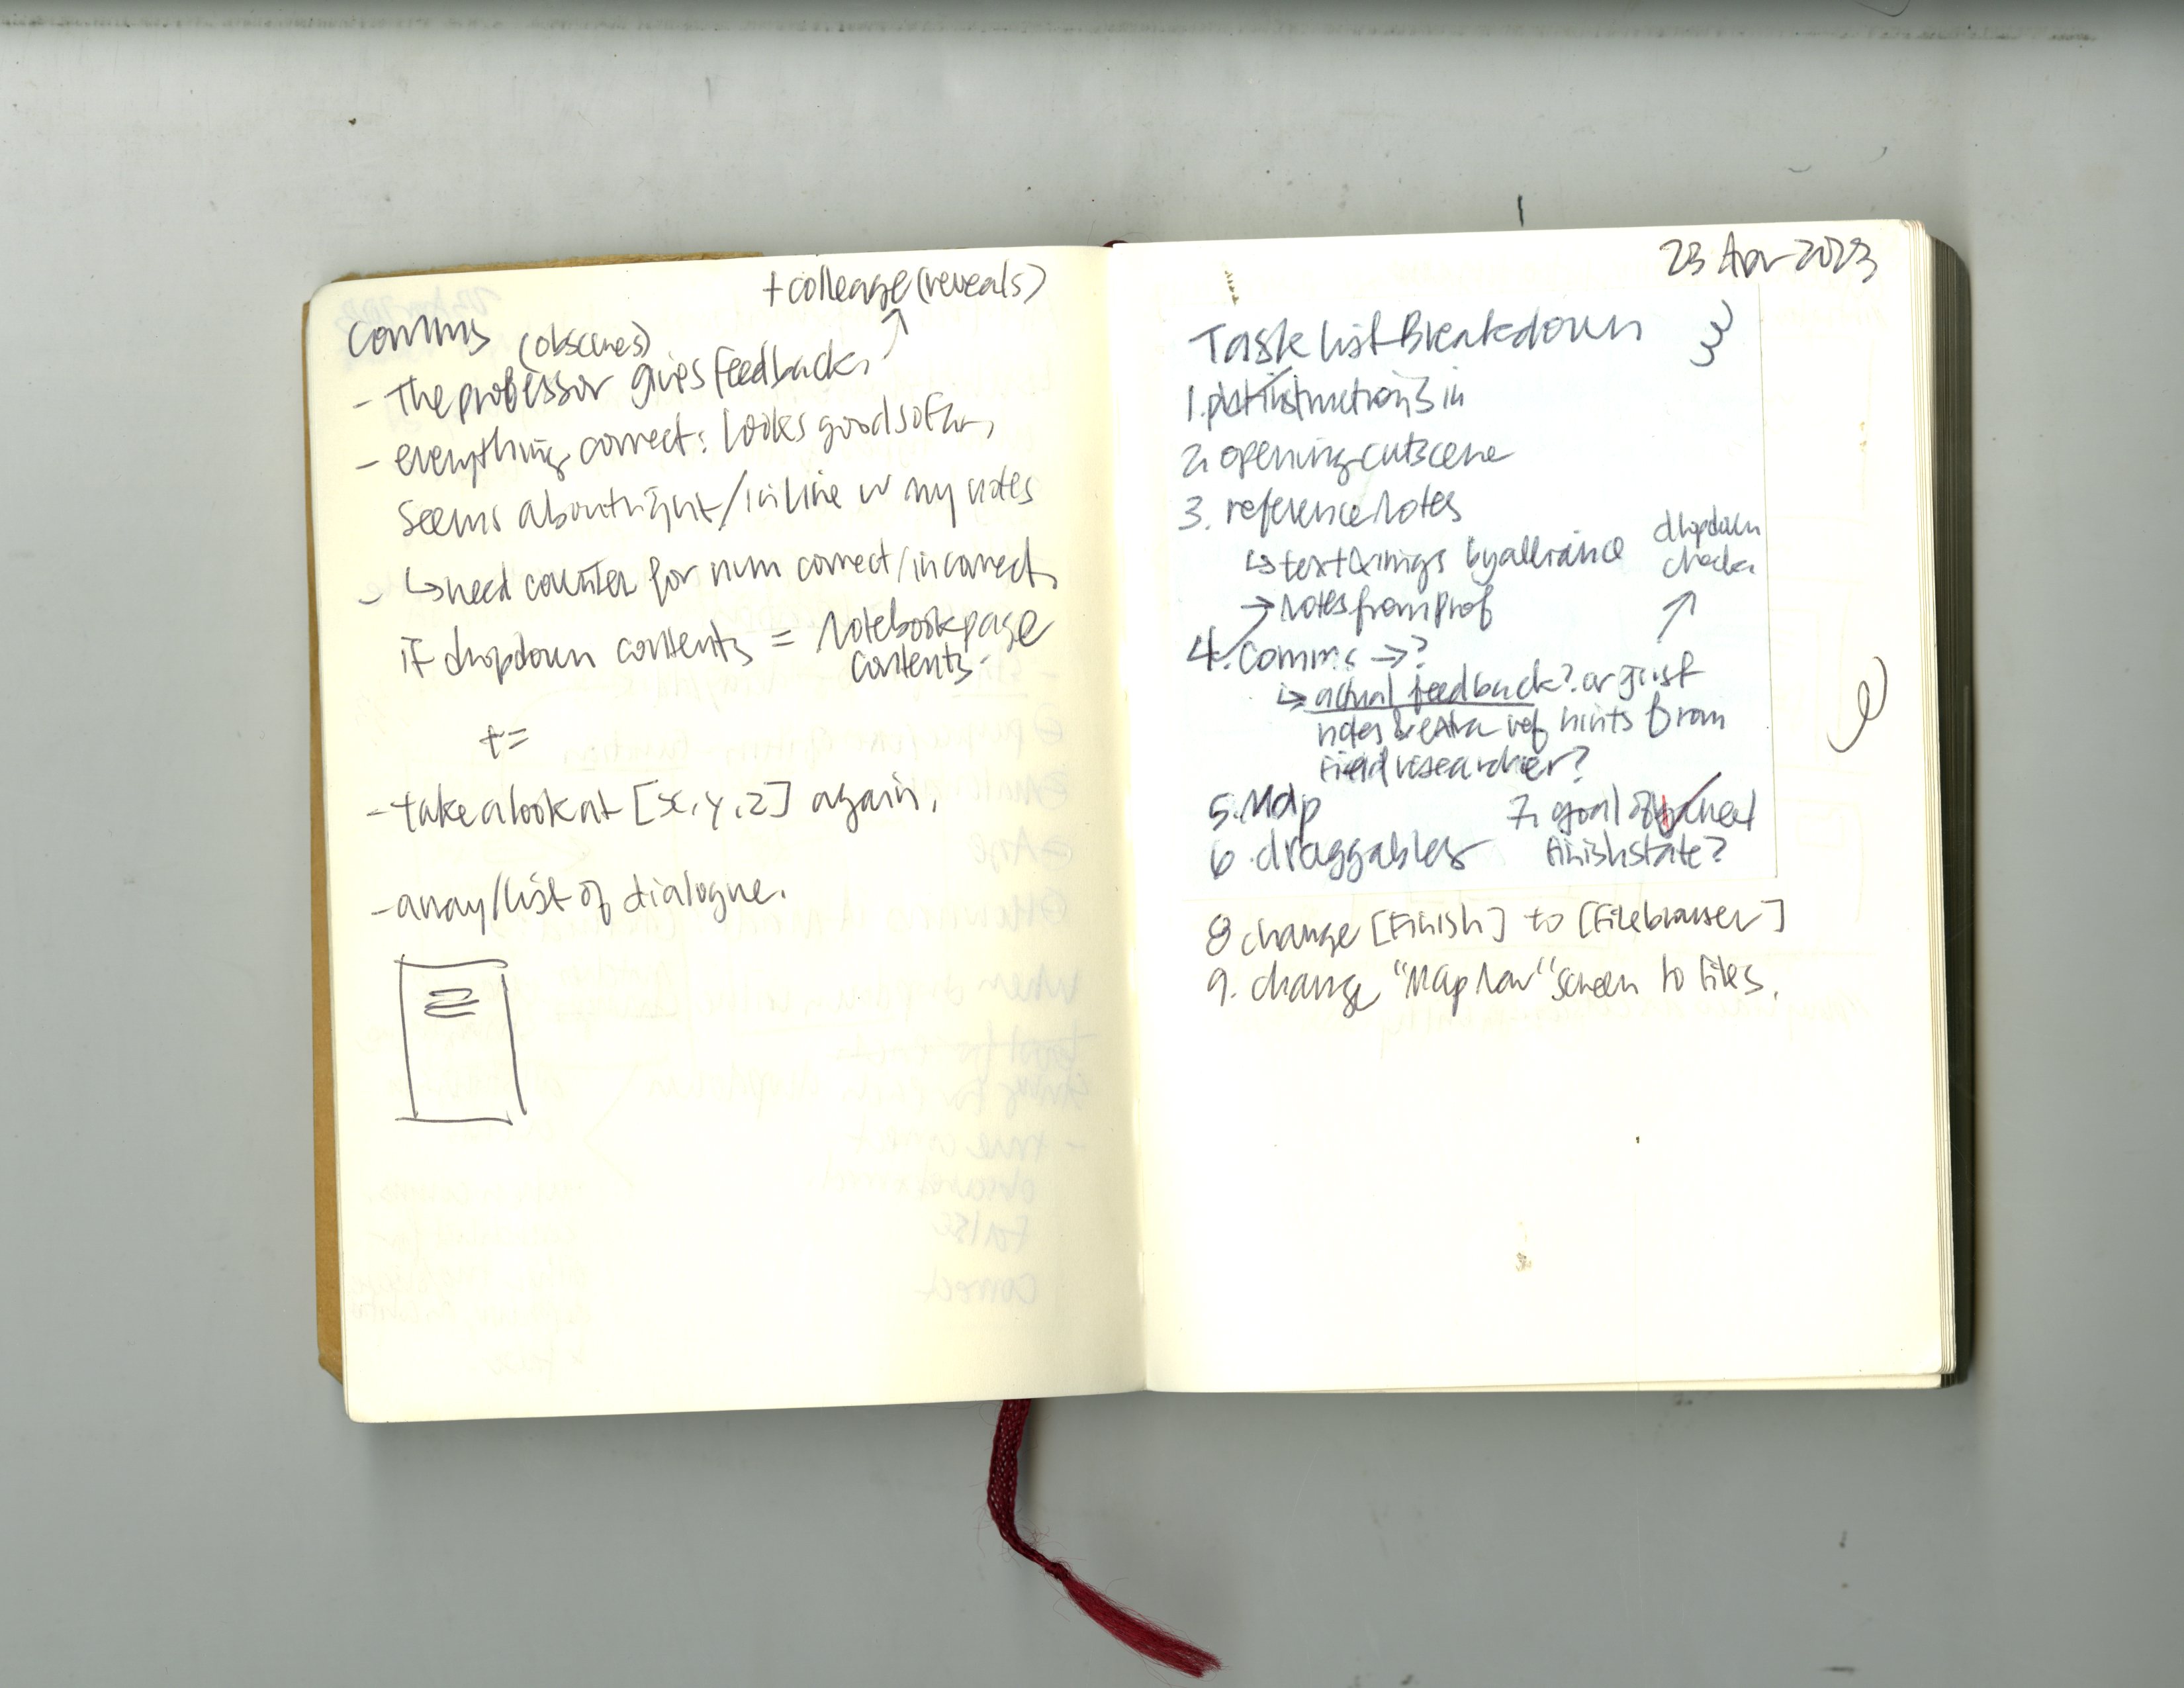 + colleage (reveals)
comms (obscures)
- The professor gives feedback,
- everything correct: looks good so far,
seems about right / in line w my notes
- ↳ need counter for num correct/incorrect,
if dropdown contents = Notebook page
contents.
+=
- take a look at [x, y, z] again,
- array/list of dialogue.
23 Apr 2023
Task list Breakdown
1. put instructions in
2. opening cutscene
3. reference notes
↳ text things by
→ Notes from Prof
dropdown
check
4. Comms → ?
↳ actual feedback? or just
notes & extra ref hints from
field researcher?
5. Map
6. draggables
7. goal of
finish state?
8 change [Finish] to [Filebrowser]
9. change "Map Nav" screen to files.